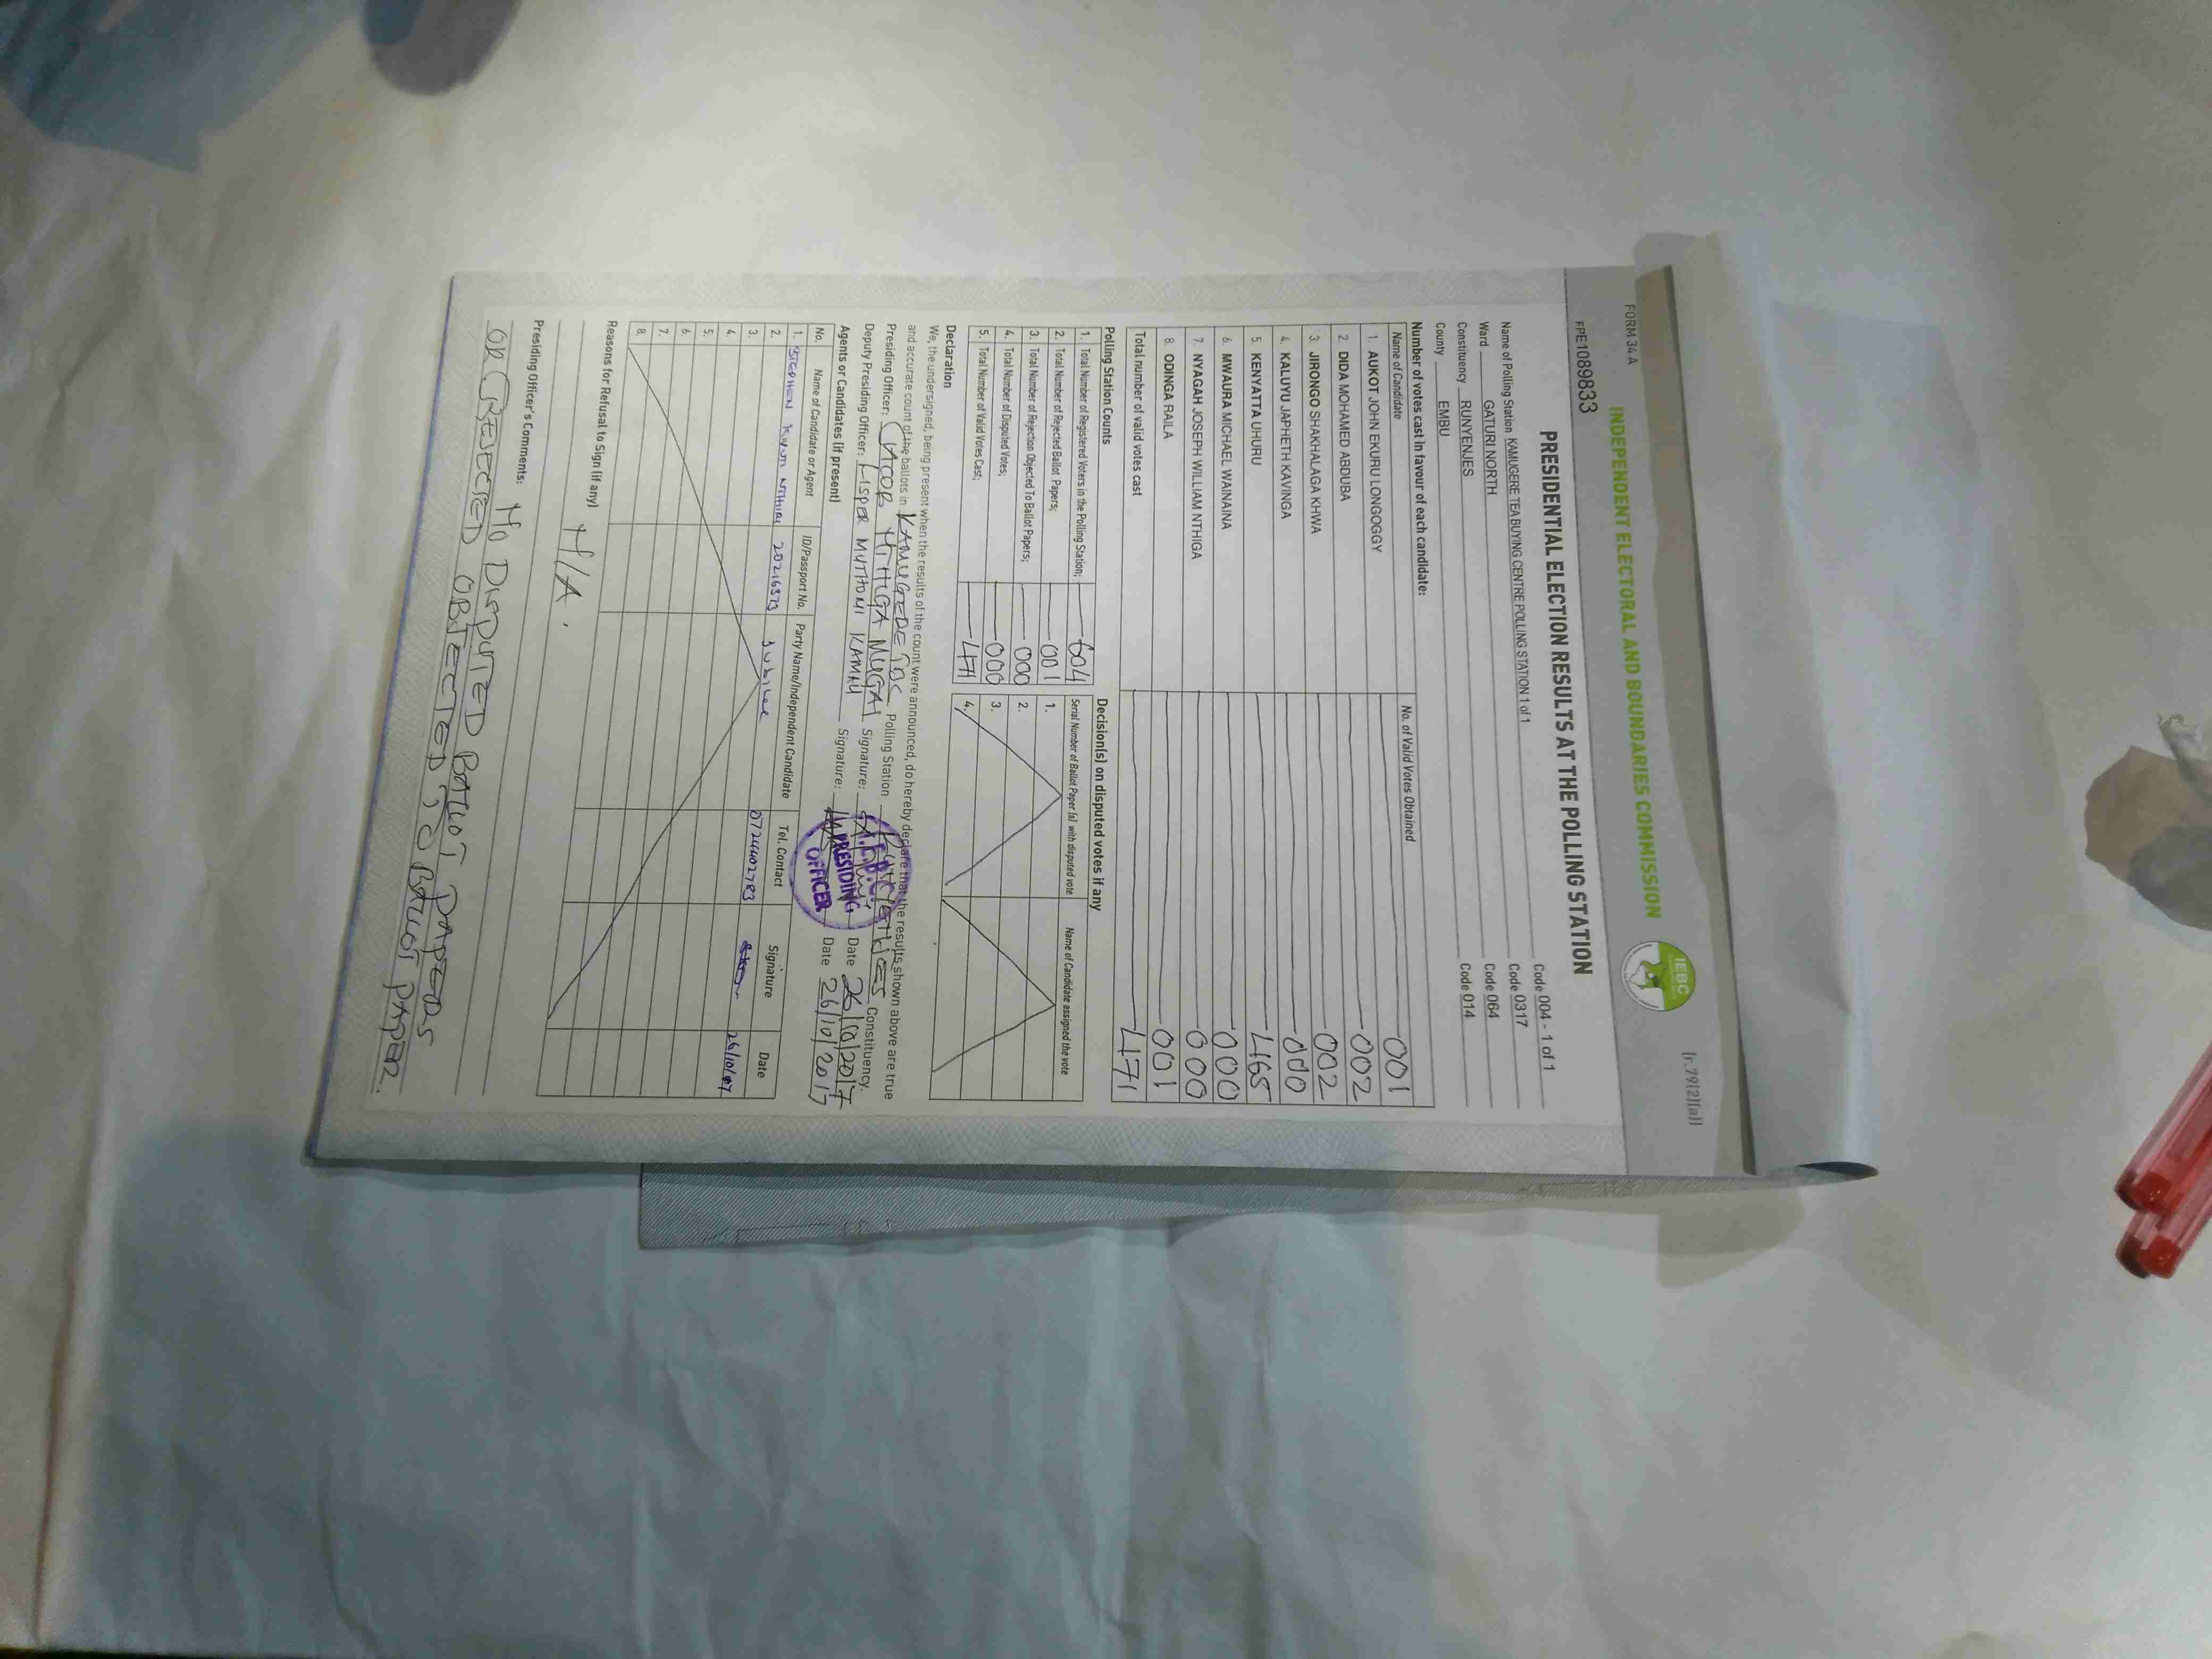 FORM 34 A
(r.79(2)(a))
INDEPENDENT ELECTORAL AND BOUNDARIES COMMISSION
IEBC
FPE1089833
PRESIDENTIAL ELECTION RESULTS AT THE POLLING STATION
Name of Polling Station KAMUGERE TEA BUYING CENTRE POLLING STATION 1 of 1 Code 004 - 1 of 1
Ward GATURI NORTH Code 0317
Constituency RUNYENJES Code 064
County EMBU Code 014
Number of votes cast in favour of each candidate:
Name of Candidate No. of Valid Votes Obtained
1. AUKOT JOHN EKURU LONGOGGY 001
2. DIDA MOHAMED ABDUBA 002
3. JIRONGO SHAKHALAGA KHWA 002
4. KALUYU JAPHETH KAVINGA 000
5. KENYATTA UHURU 465
6. MWAURA MICHAEL WAINAINA 000
7. NYAGAH JOSEPH WILLIAM NTHIGA 000
8. ODINGA RAILA 001
Total number of valid votes cast 471
Polling Station Counts
1. Total Number of Registered Voters in the Polling Station; 604
2. Total Number of Rejected Ballot Papers; 001
3. Total Number of Rejection Objected To Ballot Papers; 000
4. Total Number of Disputed Votes; 000
5. Total Number of Valid Votes Cast; 471
Decision(s) on disputed votes if any
Serial Number of Ballot Paper (s) with disputed vote Name of Candidate assigned the vote
1.
2.
3.
4.
Declaration
We, the undersigned, being present when the results of the count were announced, do hereby declare that the results shown above are true
and accurate count of the ballots in KAMUGERE TBC Polling Station RUNYENJES Constituency.
Presiding Officer: NTHIGA Signature: Date 26/10/2017
Deputy Presiding Officer: LISPER MUTHONI KAMAU Signature: Date 26/10/2017
I.E.B.C
PRESIDING
OFFICER
Agents or Candidates (if present)
No. Name of Candidate or Agent ID/Passport No. Party Name/Independent Candidate Tel. Contact Signature Date
1. STEPHEN 20216373 Jubilee 0724402783 26/10/17
2.
3.
4.
5.
6.
7.
8.
Reasons for Refusal to Sign (if any)
N/A.
Presiding Officer's Comments: NO DISPUTED BALLOT PAPERS
OR REJECTED OBJECTED TO BALLOT PAPER.